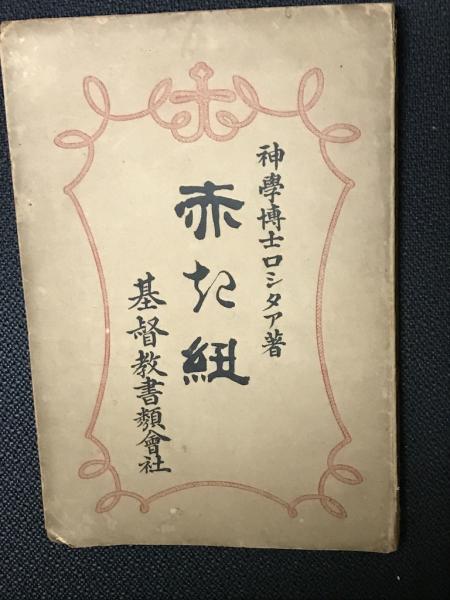 神學博士ロシタア著
赤き紐
基督教書類會社